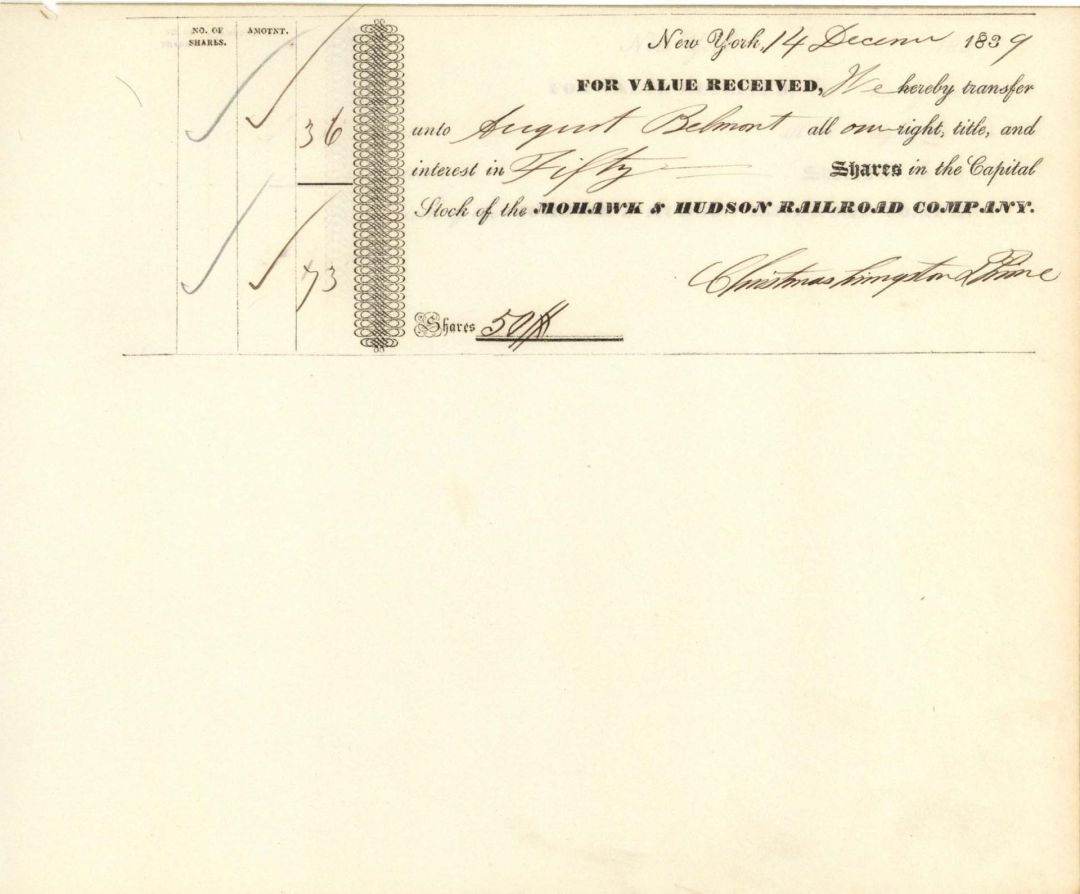 NO. OF SHARES.
AMOTNT.
36
73
New York, 14 Decemr 1839
FOR VALUE RECEIVED, We hereby transfer
unto August Belmont all our right, title, and
interest in Fifty Shares in the Capital
Stock of the MOHAWK & HUDSON RAILROAD COMPANY.
Christmas Livingston & Prime
Shares 50